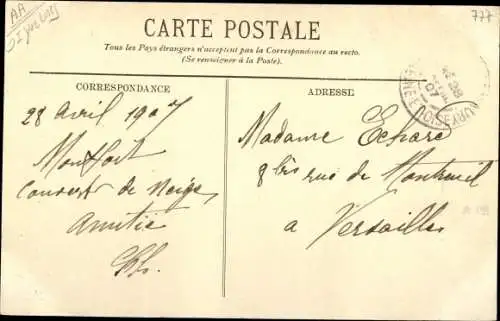 AA
777
CARTE POSTALE
Tous les Pays étrangers n'acceptent pas la Correspondance au recto.
(Se renseigner à la Poste).
CORRESPONDANCE
28 avril 1907
Montfort
Couvert de Neige
Amitié
ADRESSE
Madame Echard
8 bis rue de Montreuil
a Versailles